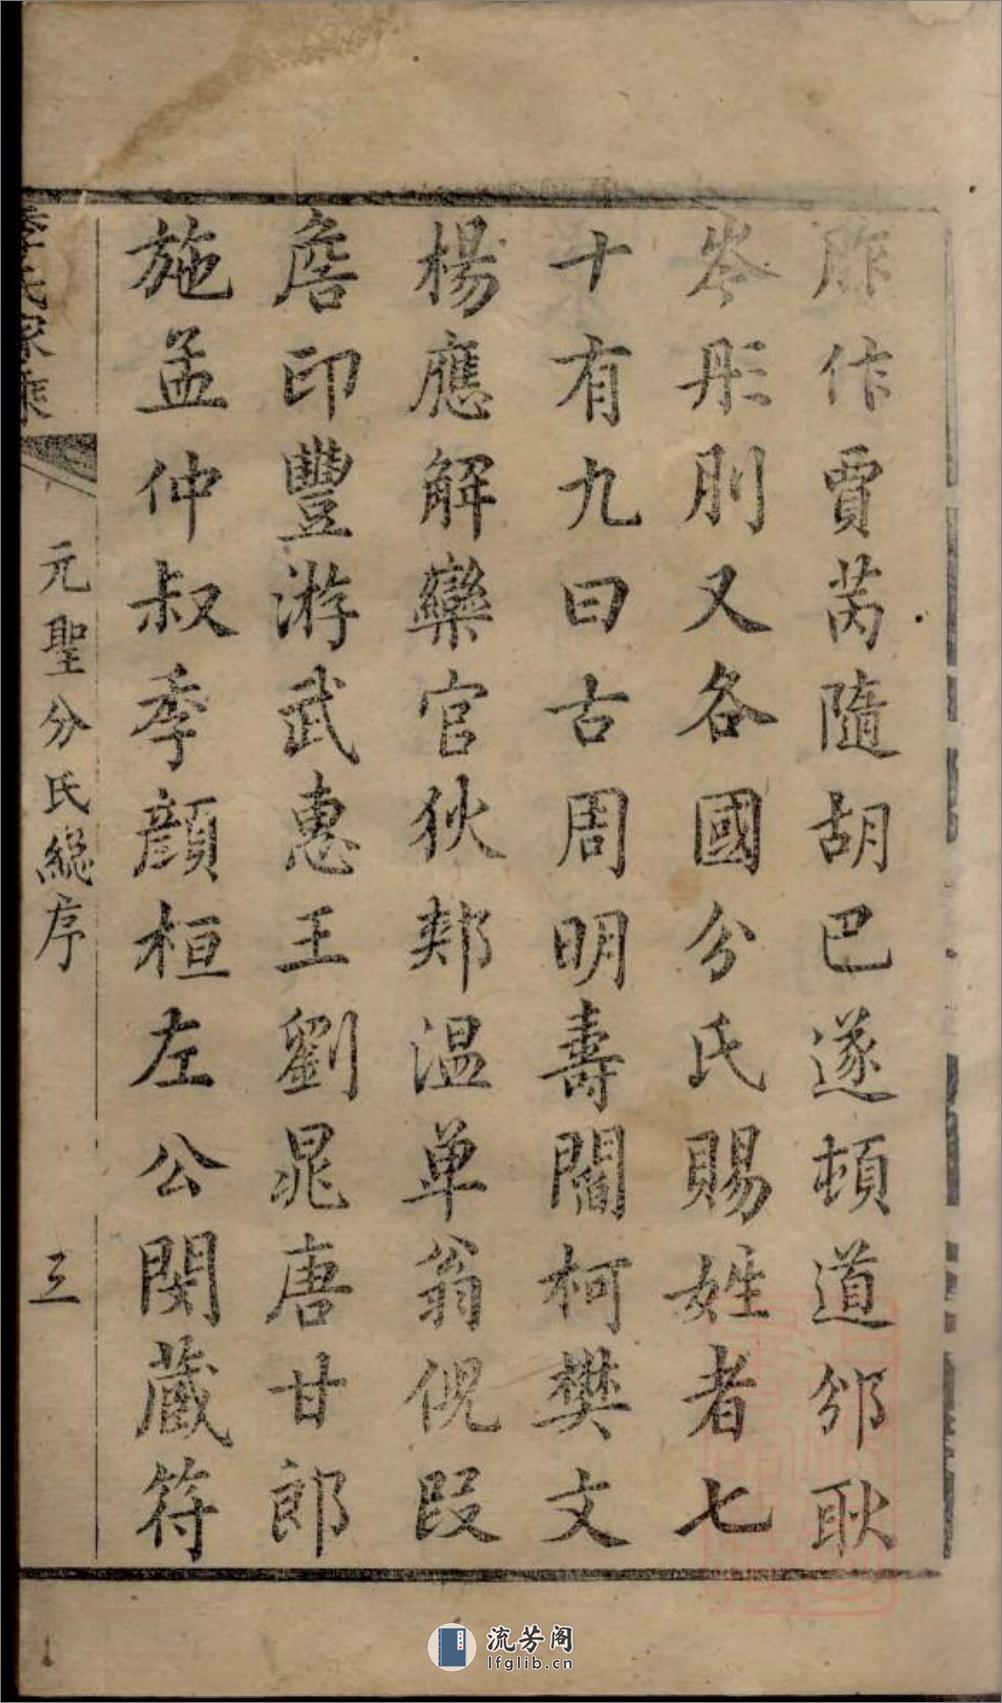 胙作賈芮隨胡巴遂頓道邠耿
岑彤刖又各國分氏賜姓者七
十有九曰古周明壽閻柯樊文
楊應解欒官狄郟温单翁倪段
詹印豐游武惠王劉晁唐甘郎
施孟仲叔季顔桓左公閔蔵符
氏家乘
元聖分氏総序
三
流芳阁
lfglib.cn